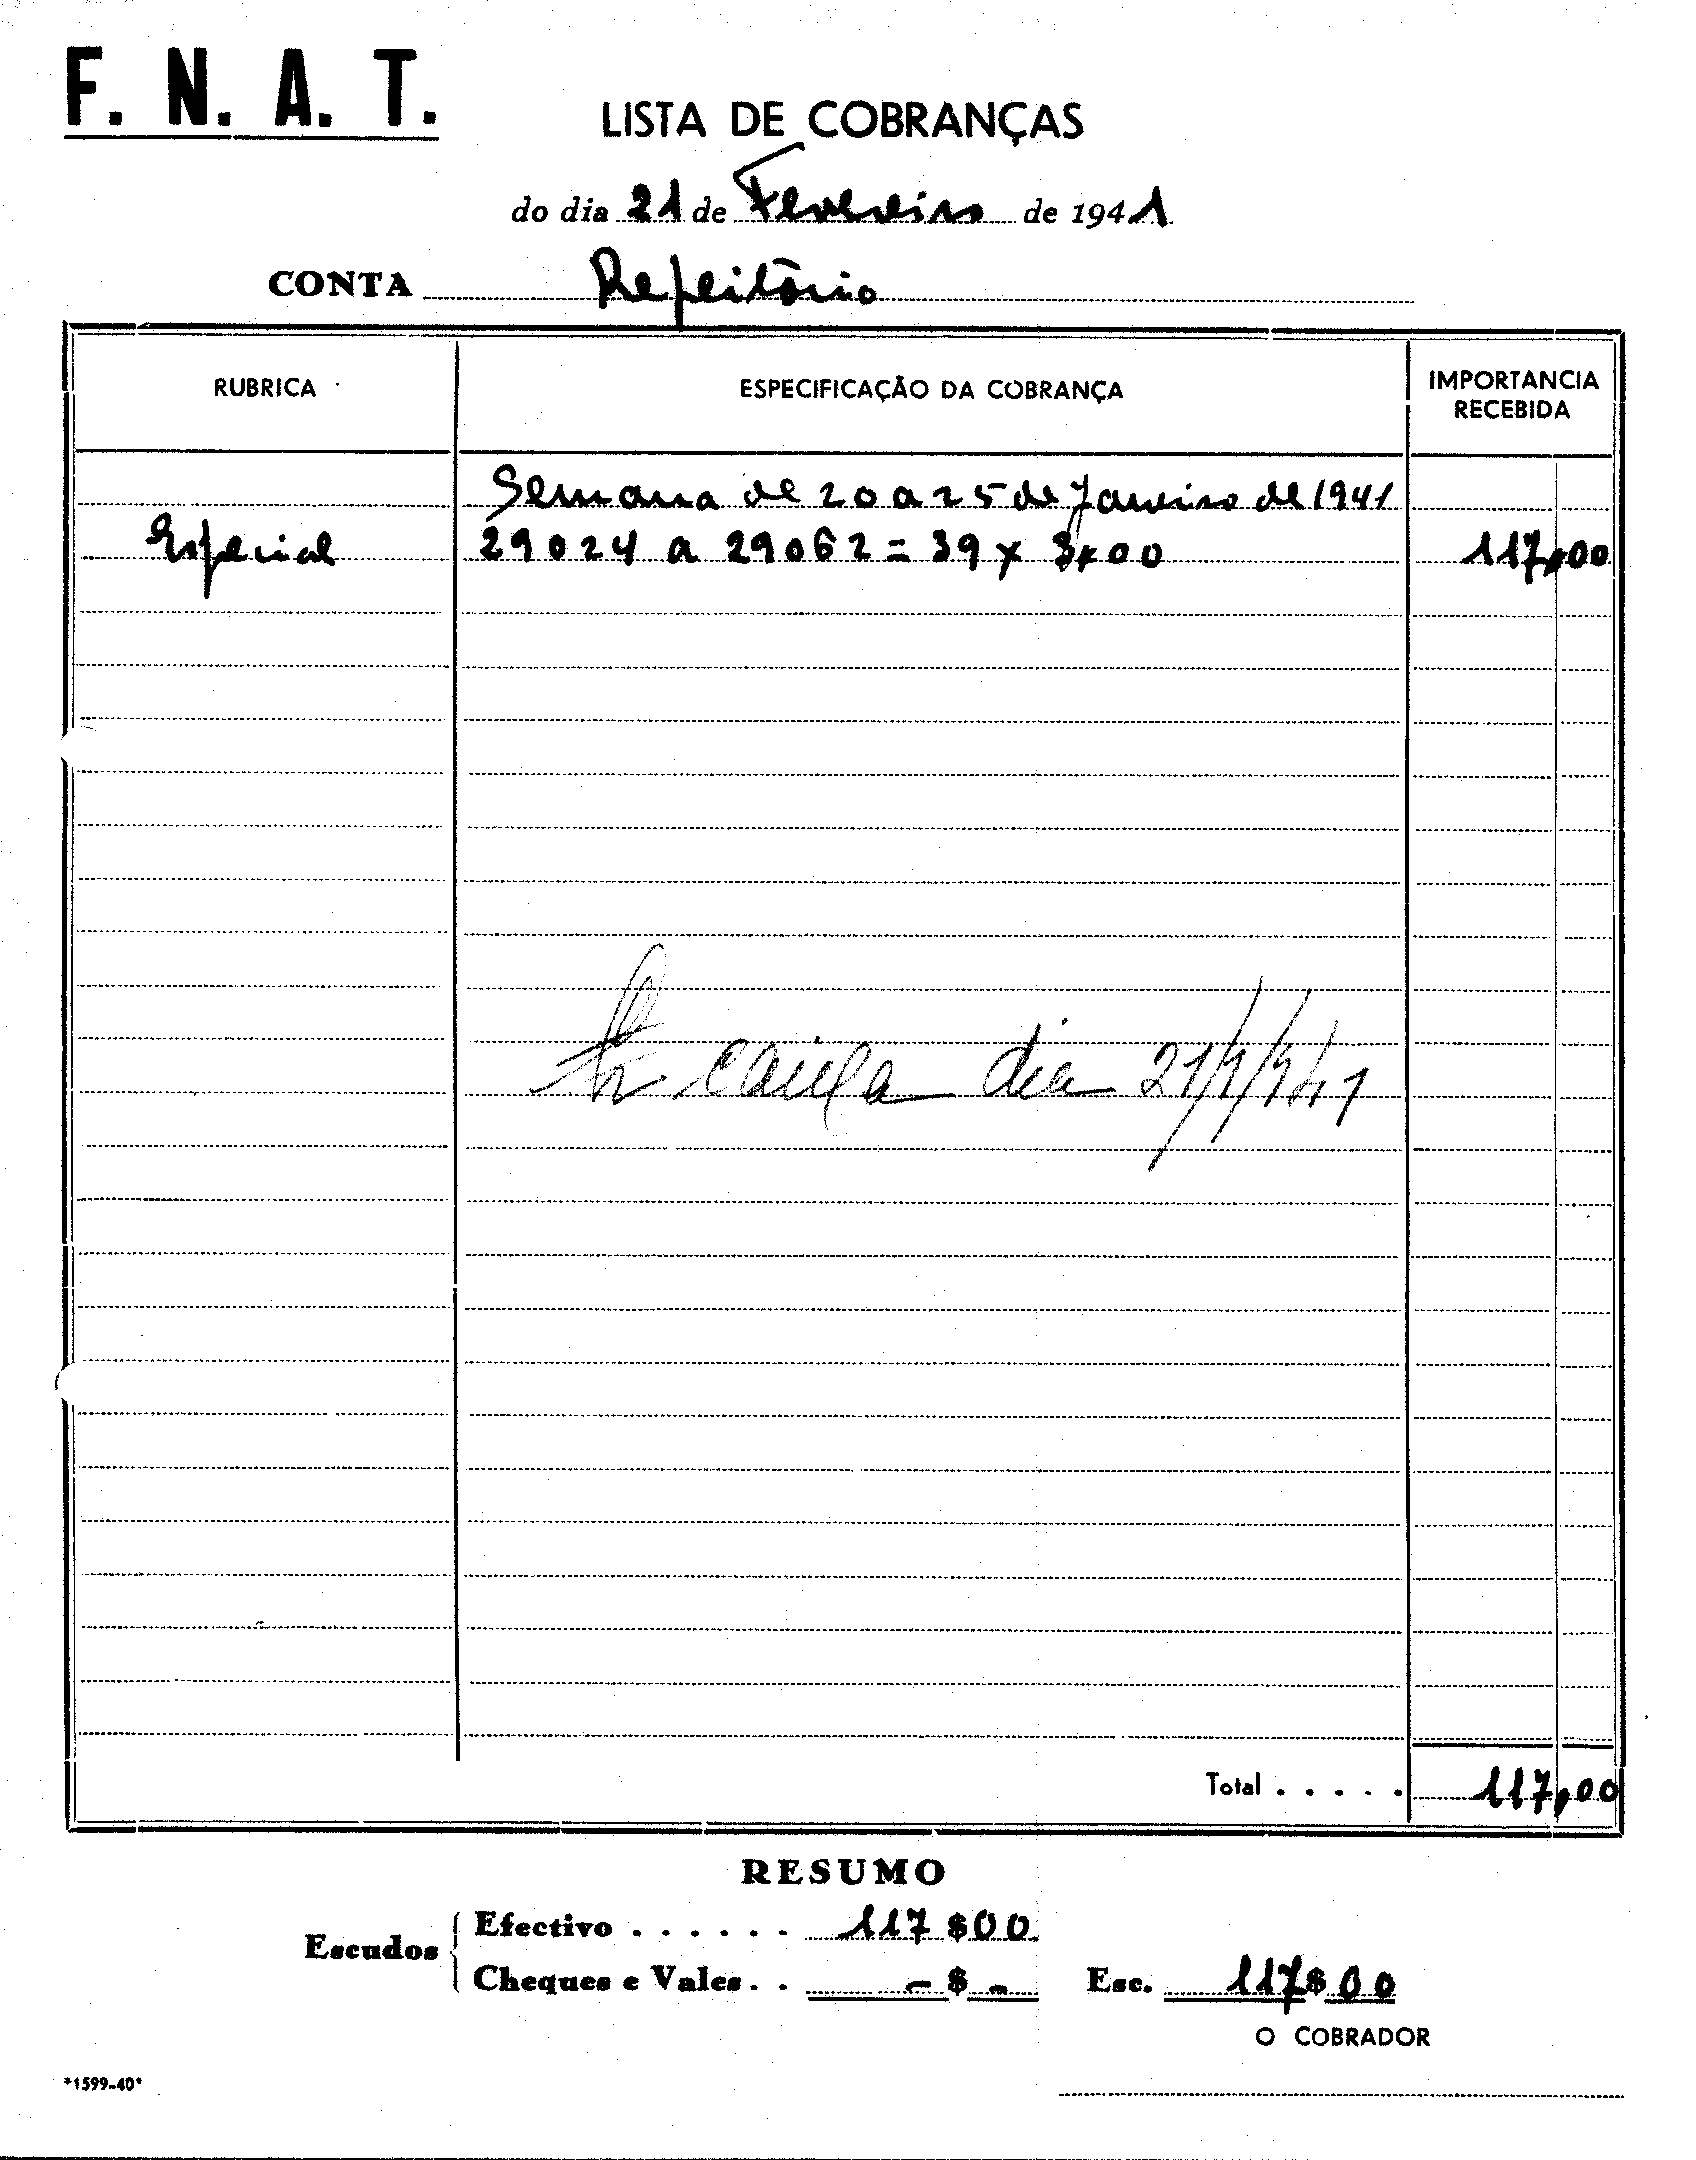 F. N. A. T.
LISTA DE COBRANÇAS
do dia 21 de Fevereiro de 1941
CONTA Refeitório
RUBRICA
ESPECIFICAÇÃO DA COBRANÇA
IMPORTANCIA
RECEBIDA
Semana de 20 a 25 de Janeiro de 1941
Especial 29024 a 29062 = 39 x 3$00 117,00
caixa dia
Total . . . . . 117,00
RESUMO
Escudos
Efectivo . . . . . . 117 $00
Cheques e Vales . . - $ -
Esc. 117$00
O COBRADOR
*1599-40*